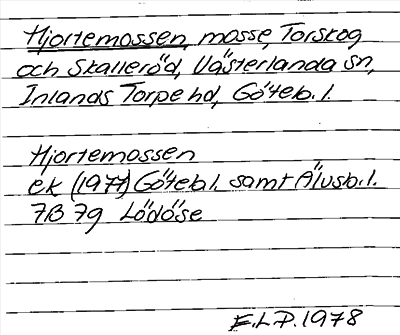 Hjortemossen, mosse, Torskog
och Skalleröd, Västerlanda sn,
Inlands Torpe hd, Göteb. l.
Hjortemossen
ek (1977) Göteb l. samt Älvsb. l.
7B 7g Lödöse
E.L.P. 1978